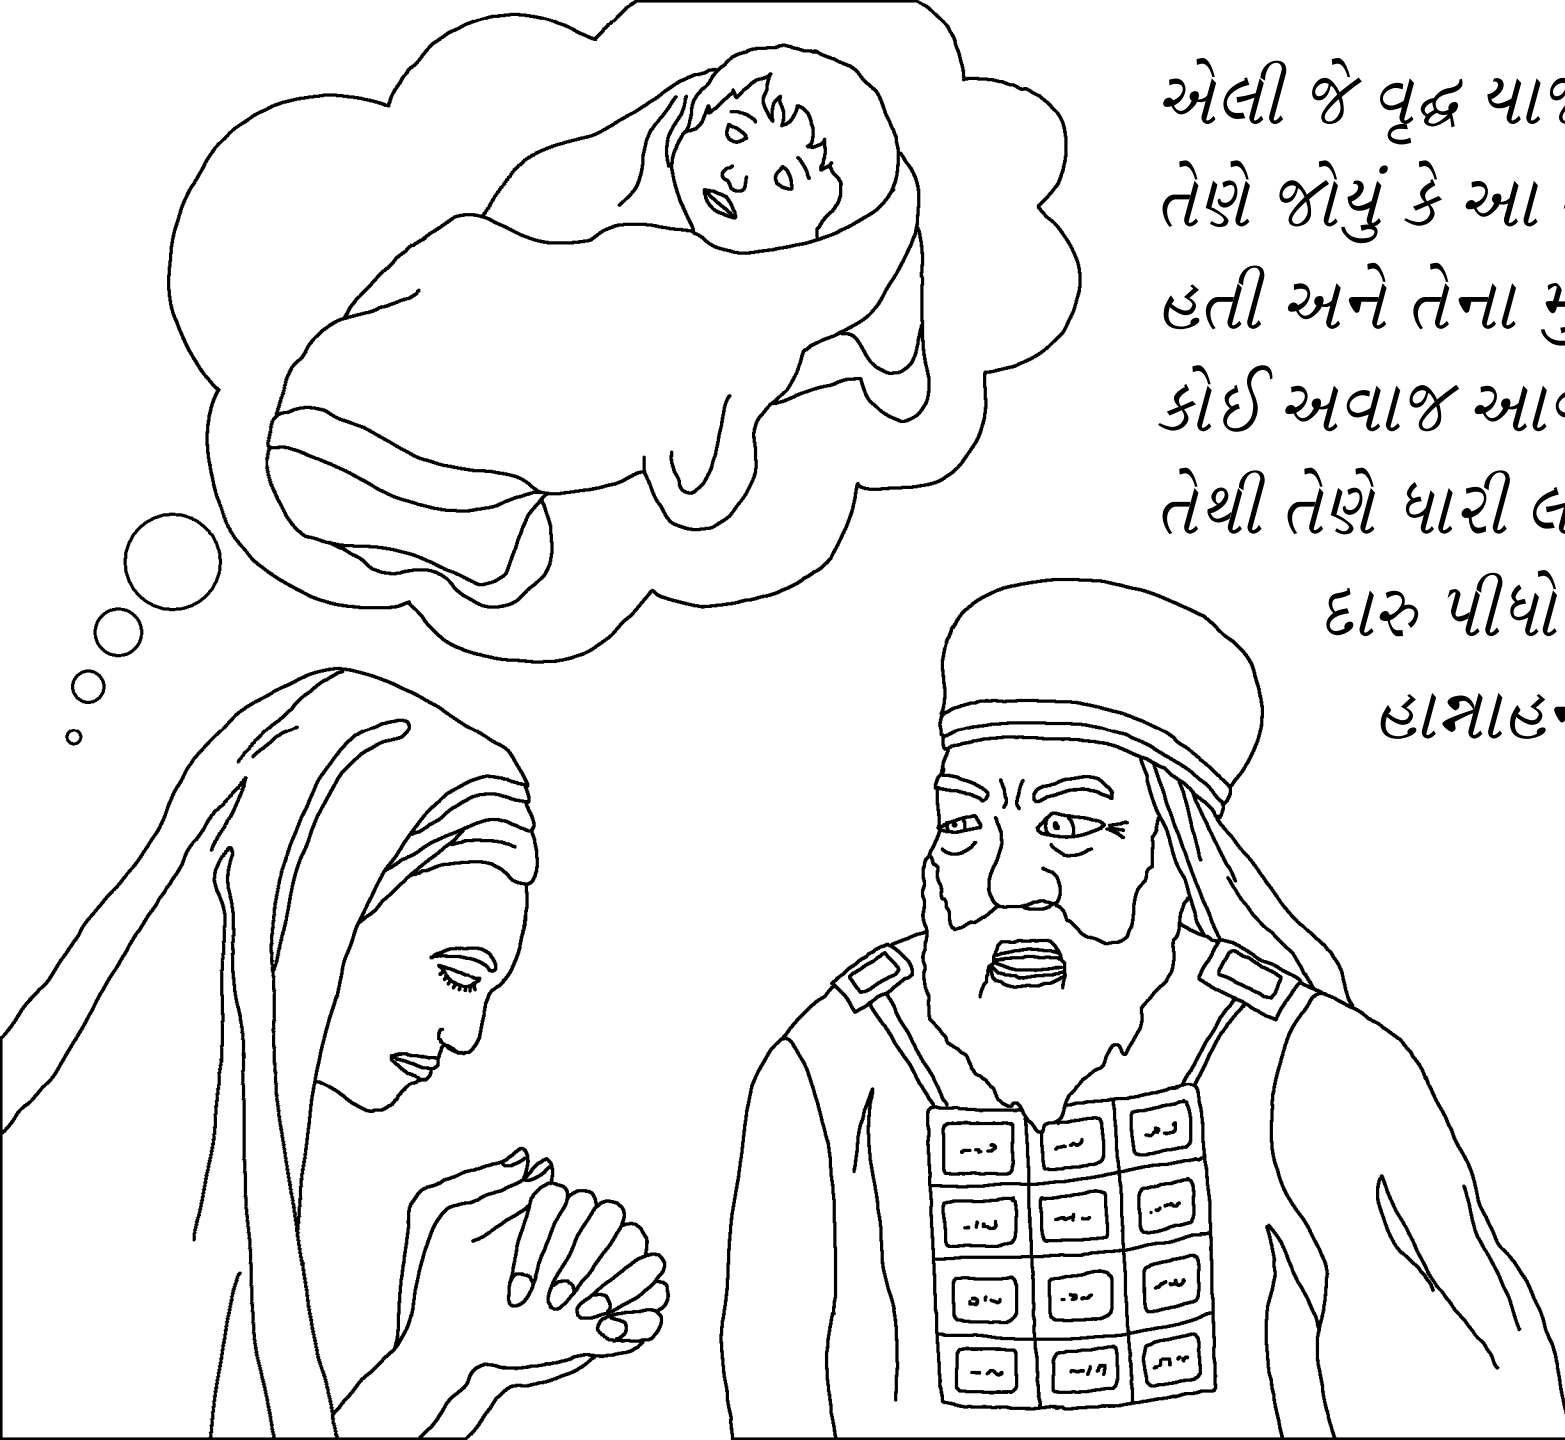 એલી જે વૃદ્ધ
તેણે જોયું કે આ
હતી અને તેના
કોઈ અવાજ
તેથી તેણે ધારી
દારુ પીધો